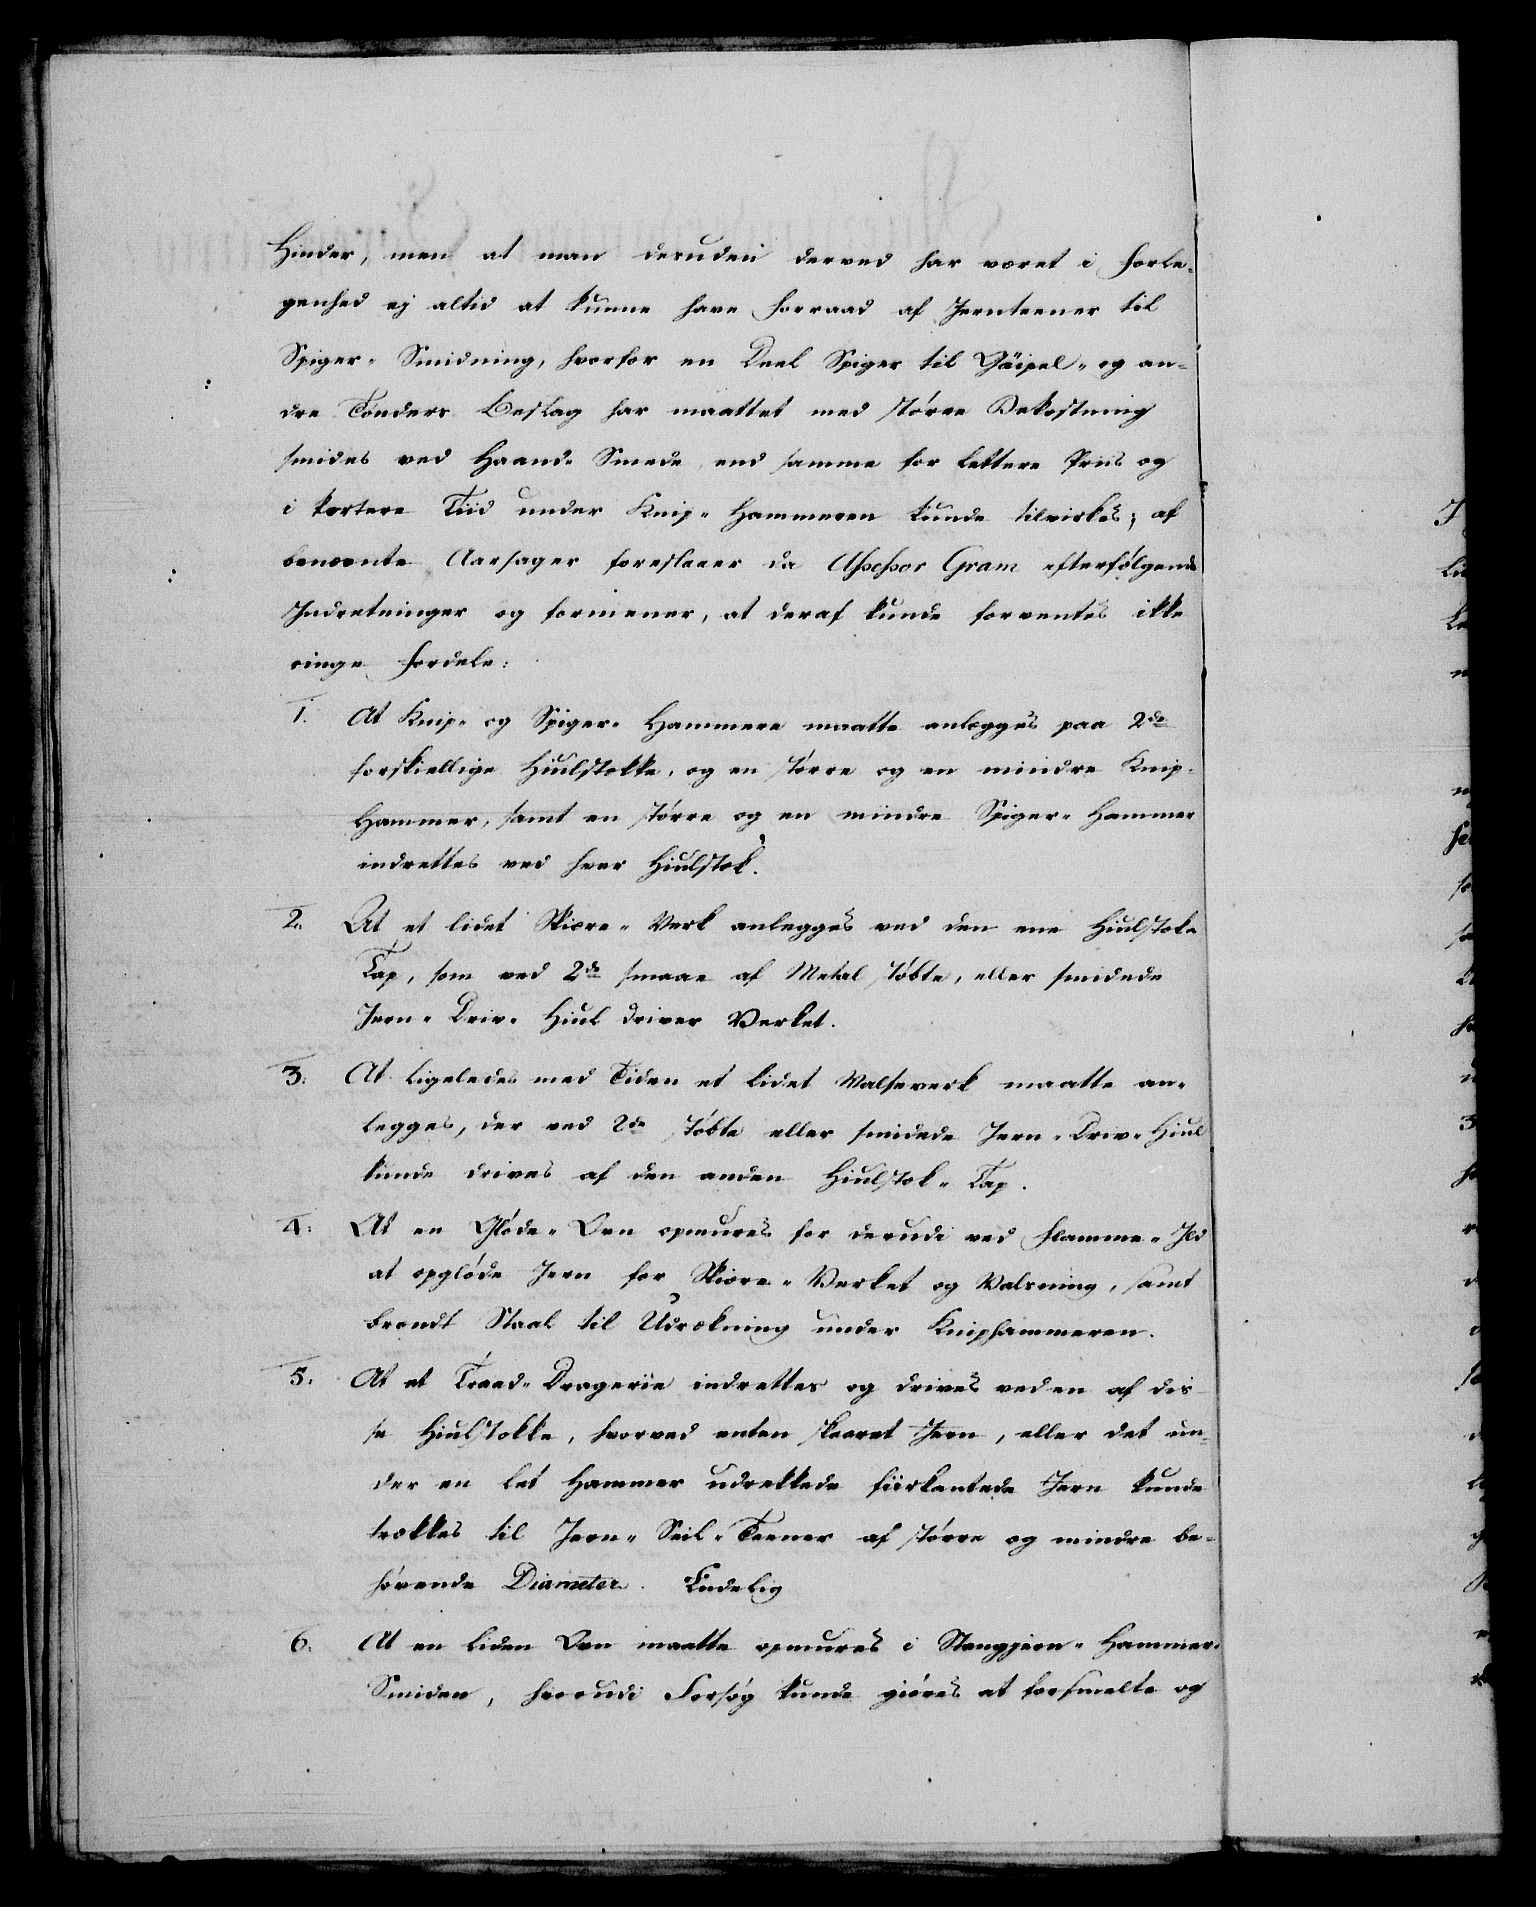 Hinder, men at man desuden derved har været i Forle-
genhed ej altid at kunne have Forraad af Jernteener til
Spiger- Smidning, hvorfor en Deel Spiger til Gäipel- og an-
dre Tønders Beslag har maattet med større Bekostning
smides ved Haand- Smede end samme for lettere Priis og
i kortere Tiid under Knip- Hammeren kunde tilvirkes; af
benævnte Aarsager foreslaaer da Assessor Gram efterfølgende
Indretninger og formener, at deraf kunde forventes ikke
ringe Fordele:
1. At Knip- og Spiger- Hammere maatte anlægges paa 2de
forskiellige Hiulstokke, og en større og en mindre Knip-
Hammer, samt en større og en mindre Spiger- Hammer
indrettes ved hver Hiulstok.
2. At et lidet Skiære- Verk anlegges ved den ene Hiulstok-
Tap, som ved 2de smaae af Metal støbte, eller smidede
Jern- Driv- Hiul driver Verket.
3. At ligeledes med Tiden et lidet Valseverk maatte an-
legges, der ved 2de støbte eller smidede Jern- Driv- Hiul
kunde drives af den anden Hiulstok- Tap.
4. At en Gløde- Ovn opmures for derudi ved Flamme- Ild
at opgløde Jern for Skiære- Verket og Valsning, samt
brændt Staal til Udrækning under Kniphammeren.
5. At et Traad- Dragerie indrettes og drives ved en af dis-
se Hiulstokke, hvorved enten skaaret Jern, eller det un-
der en let Hammer udrekkede fiirkantede Jern kunde
trækkes til Jern- Seil- Teener af større og mindre be-
hørende Diameter. Endelig
6. At en liden Ovn maatte opmures i Stangjern- Hammer-
Smiden, hvorudi Forsøg kunde giøres at forsmelte og